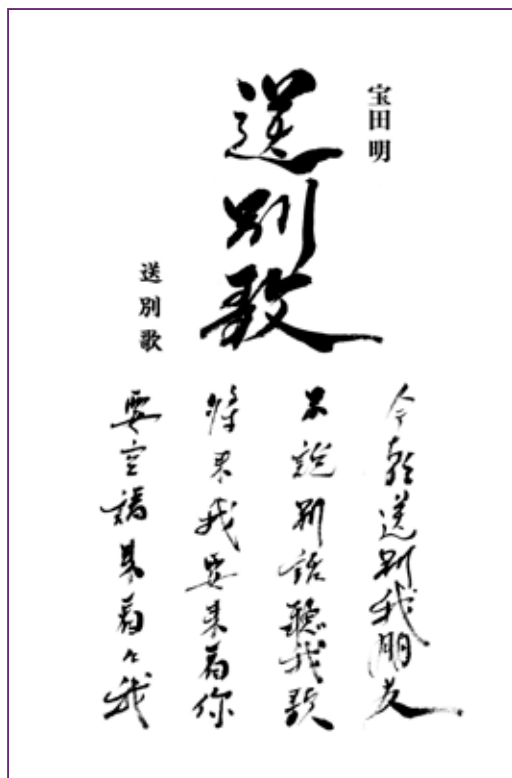 宝田明
送別歌
送別歌
今朝送別我朋友
不說別話聽我歌
将来我要来看你
要空請来看々我